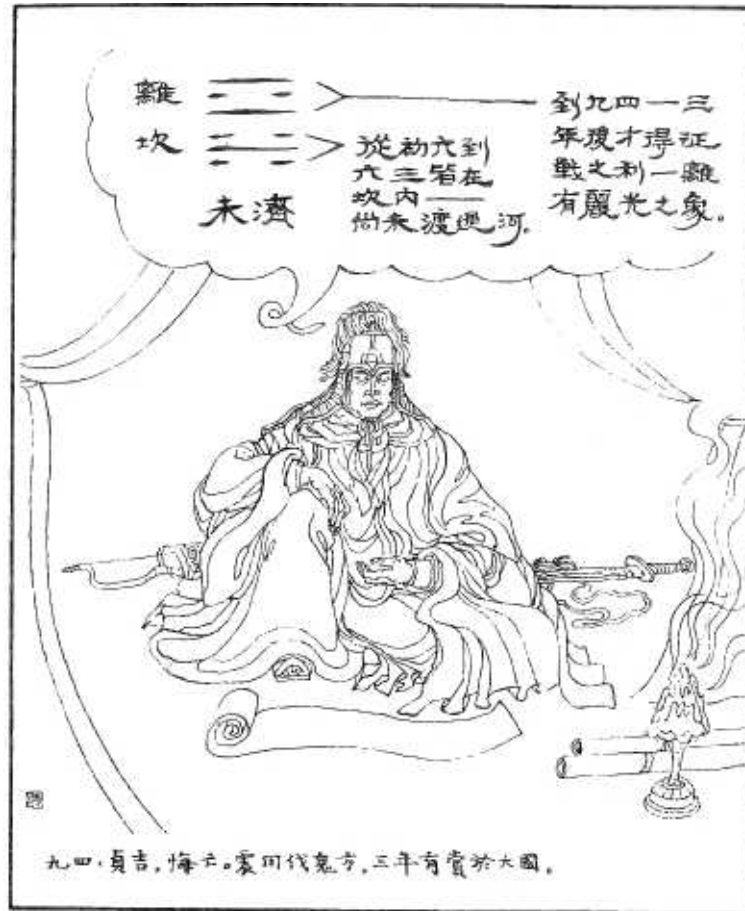 離
坎
未濟
從初六到
六三皆在
坎內——
尚未渡過河。
到九四—三
年後才得征
戰之利—離
有麗光之象。
九四，貞吉，悔亡。震用伐鬼方，三年有賞於大國。